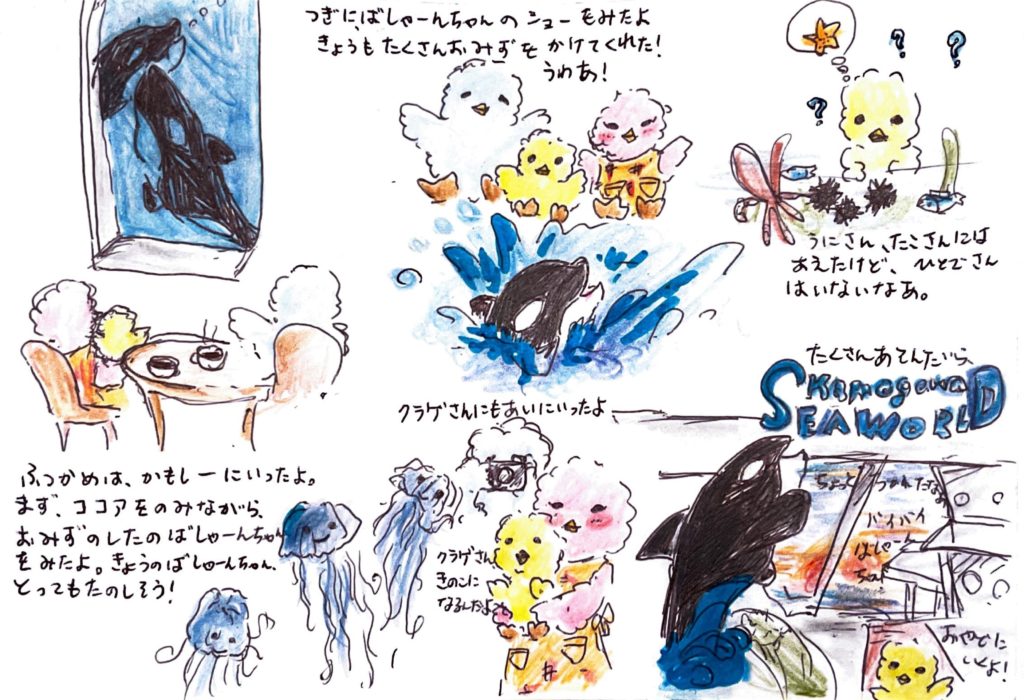 ふつかめは、かもしーにいったよ。
まず、ココアをのみながら、
おみずのしたのばしゃーんちゃん
をみたよ。きょうのばしゃーんちゃん、
とってもたのしそう!
つぎに、ばしゃーんちゃんのショーをみたよ
きょうもたくさんおみずをかけてくれた!
うわあ!
? ? ?
うにさん、たこさんには
あえたけど、ひとでさん
はいないなあ。
クラゲさんにもあいにいったよ
クラゲさん、
きのこに
なるんだよ
たくさんあそんだから、
Kamogawa
SEAWORLD
ちょっと つかれたなあ
バイバイ
ばしゃーん
ちゃん
おやどに
いくよ!